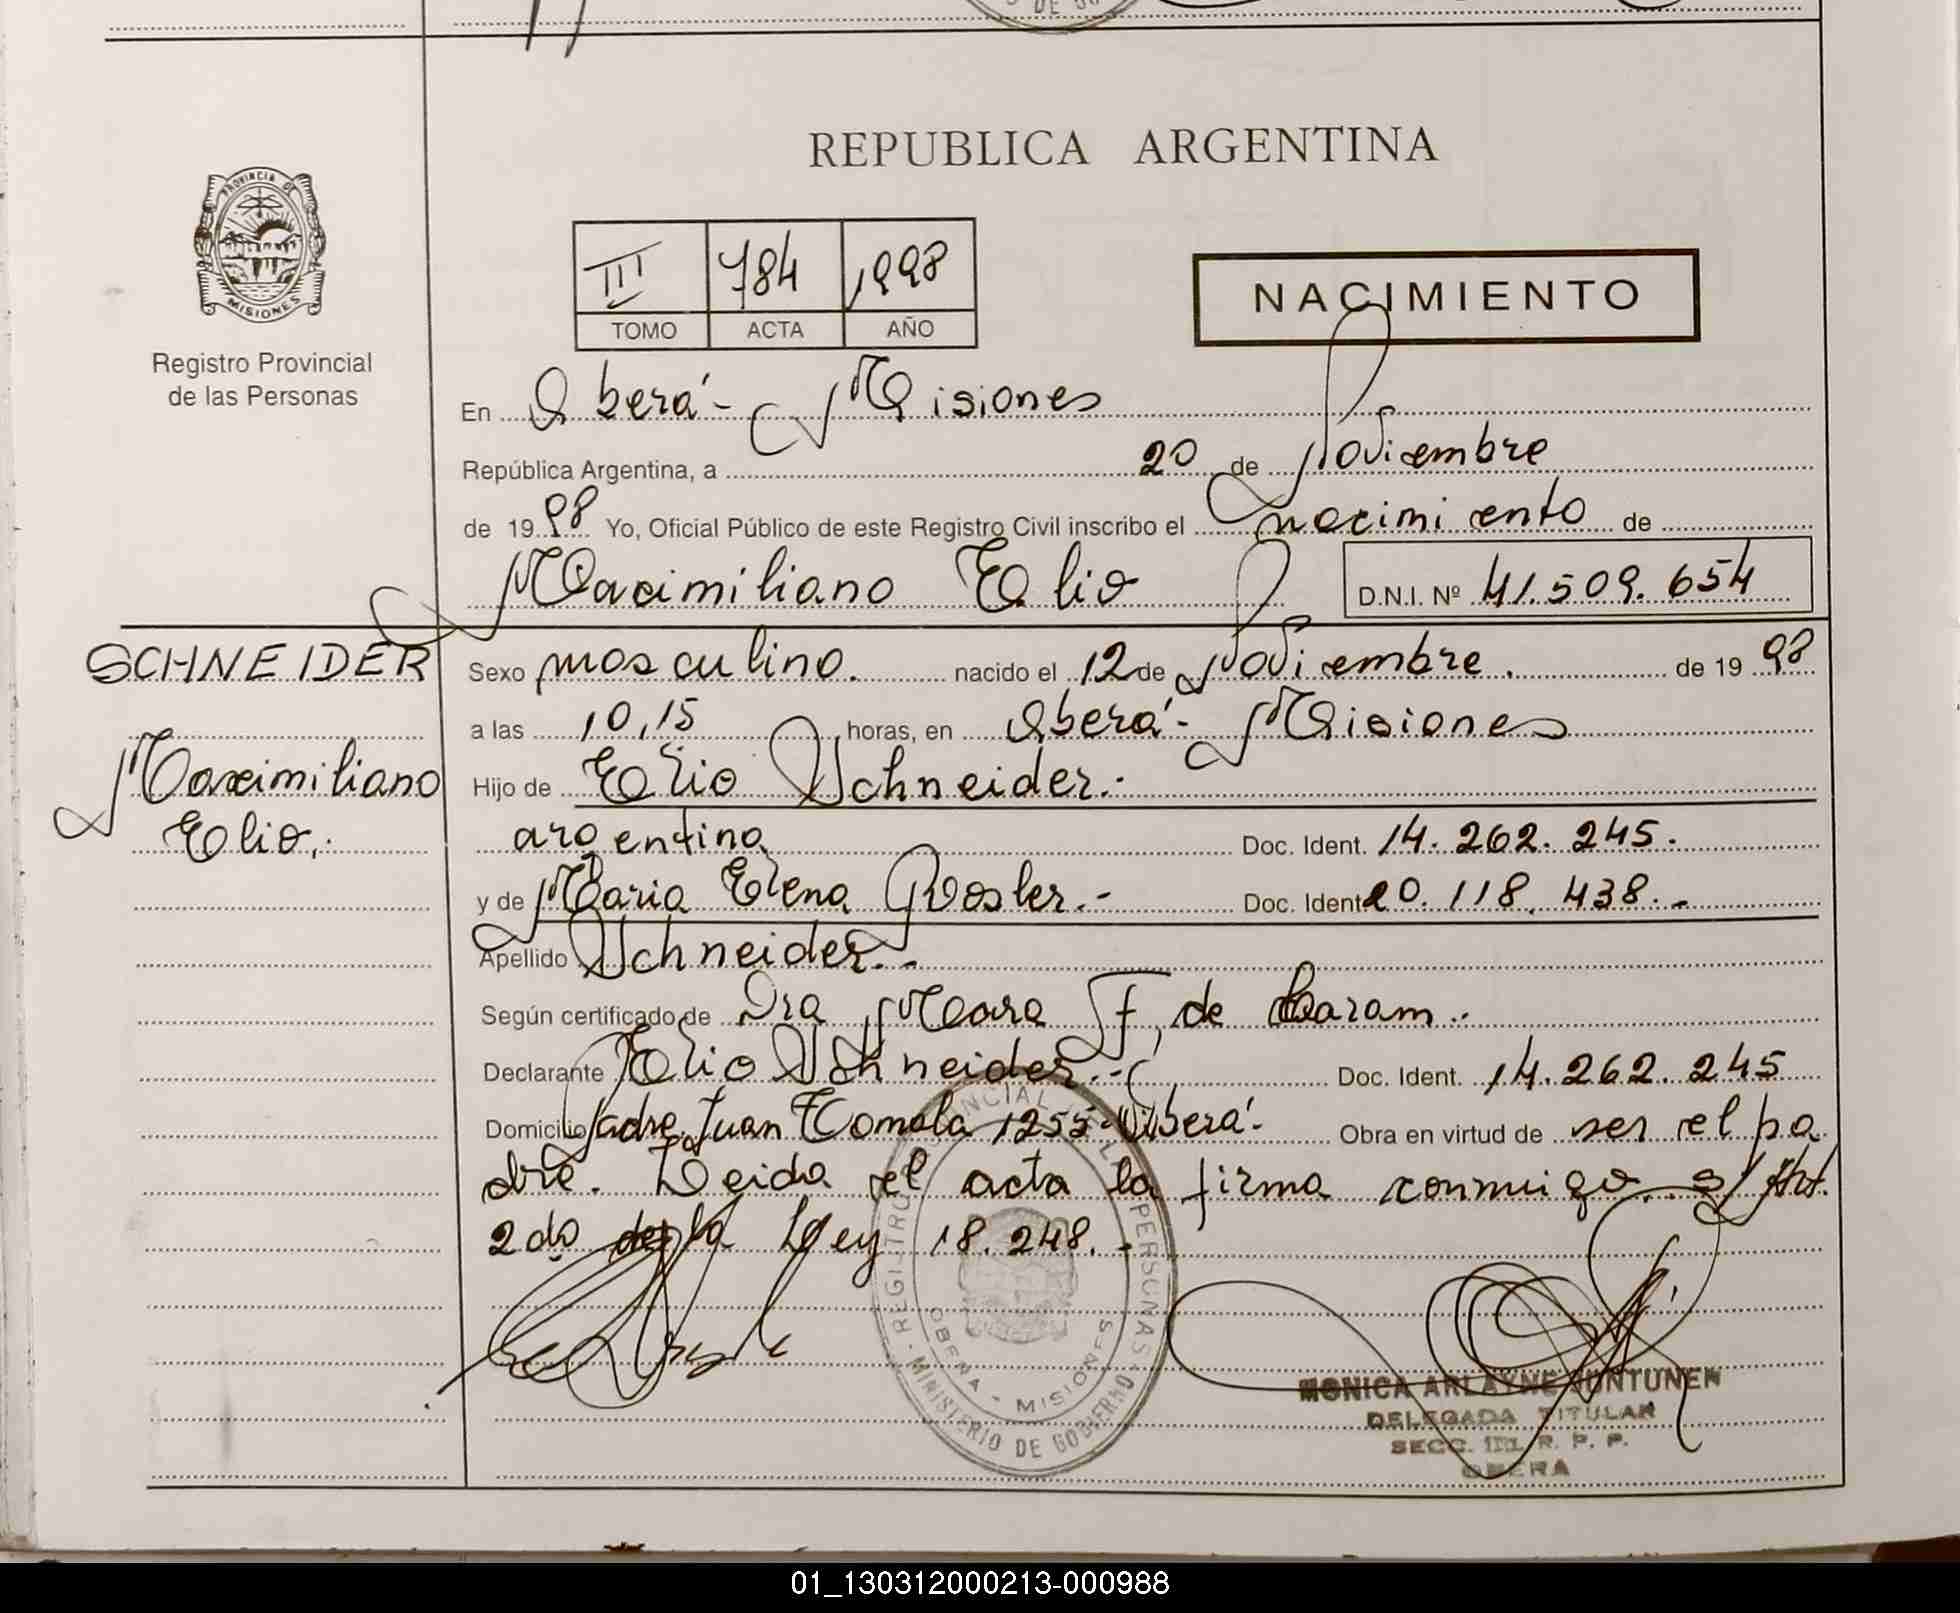 REPUBLICA ARGENTINA
PROVINCIA DE
MISIONES
Registro Provincial
de las Personas
III 784 1998
TOMO ACTA AÑO
NACIMIENTO
En Oberá - Misiones
República Argentina, a 20 de Noviembre
de 1998 Yo, Oficial Público de este Registro Civil inscribo el nacimiento de
Maximiliano Elio D.N.I. Nº 41.509.654
SCHNEIDER
Maximiliano
Elio.
Sexo masculino. nacido el 12 de Noviembre. de 1998
a las 10,15 horas, en Oberá - Misiones
Hijo de Elio Schneider.-
argentino Doc. Ident. 14.262.245.
y de Maria Elena Rosler.- Doc. Ident 20.118.438.-
Apellido Schneider.-
Según certificado de Dra Mara F. de Karam..
Declarante Elio Schneider.- Doc. Ident. 14.262.245
Domicilio Padre Juan 1255 - Oberá - Obra en virtud de ser el pa
dre. Leida el acta la firma conmigo. s/Art.
2do de la Ley 18.248.-
REGISTRO PROVINCIAL DE LAS PERSONAS
MINISTERIO DE GOBIERNO
OBERA - MISIONES
MONICA ARLAYNE JUNTUNEN
DELEGADA TITULAR
SECC. III R. P. P.
OBERA
01_130312000213-000988